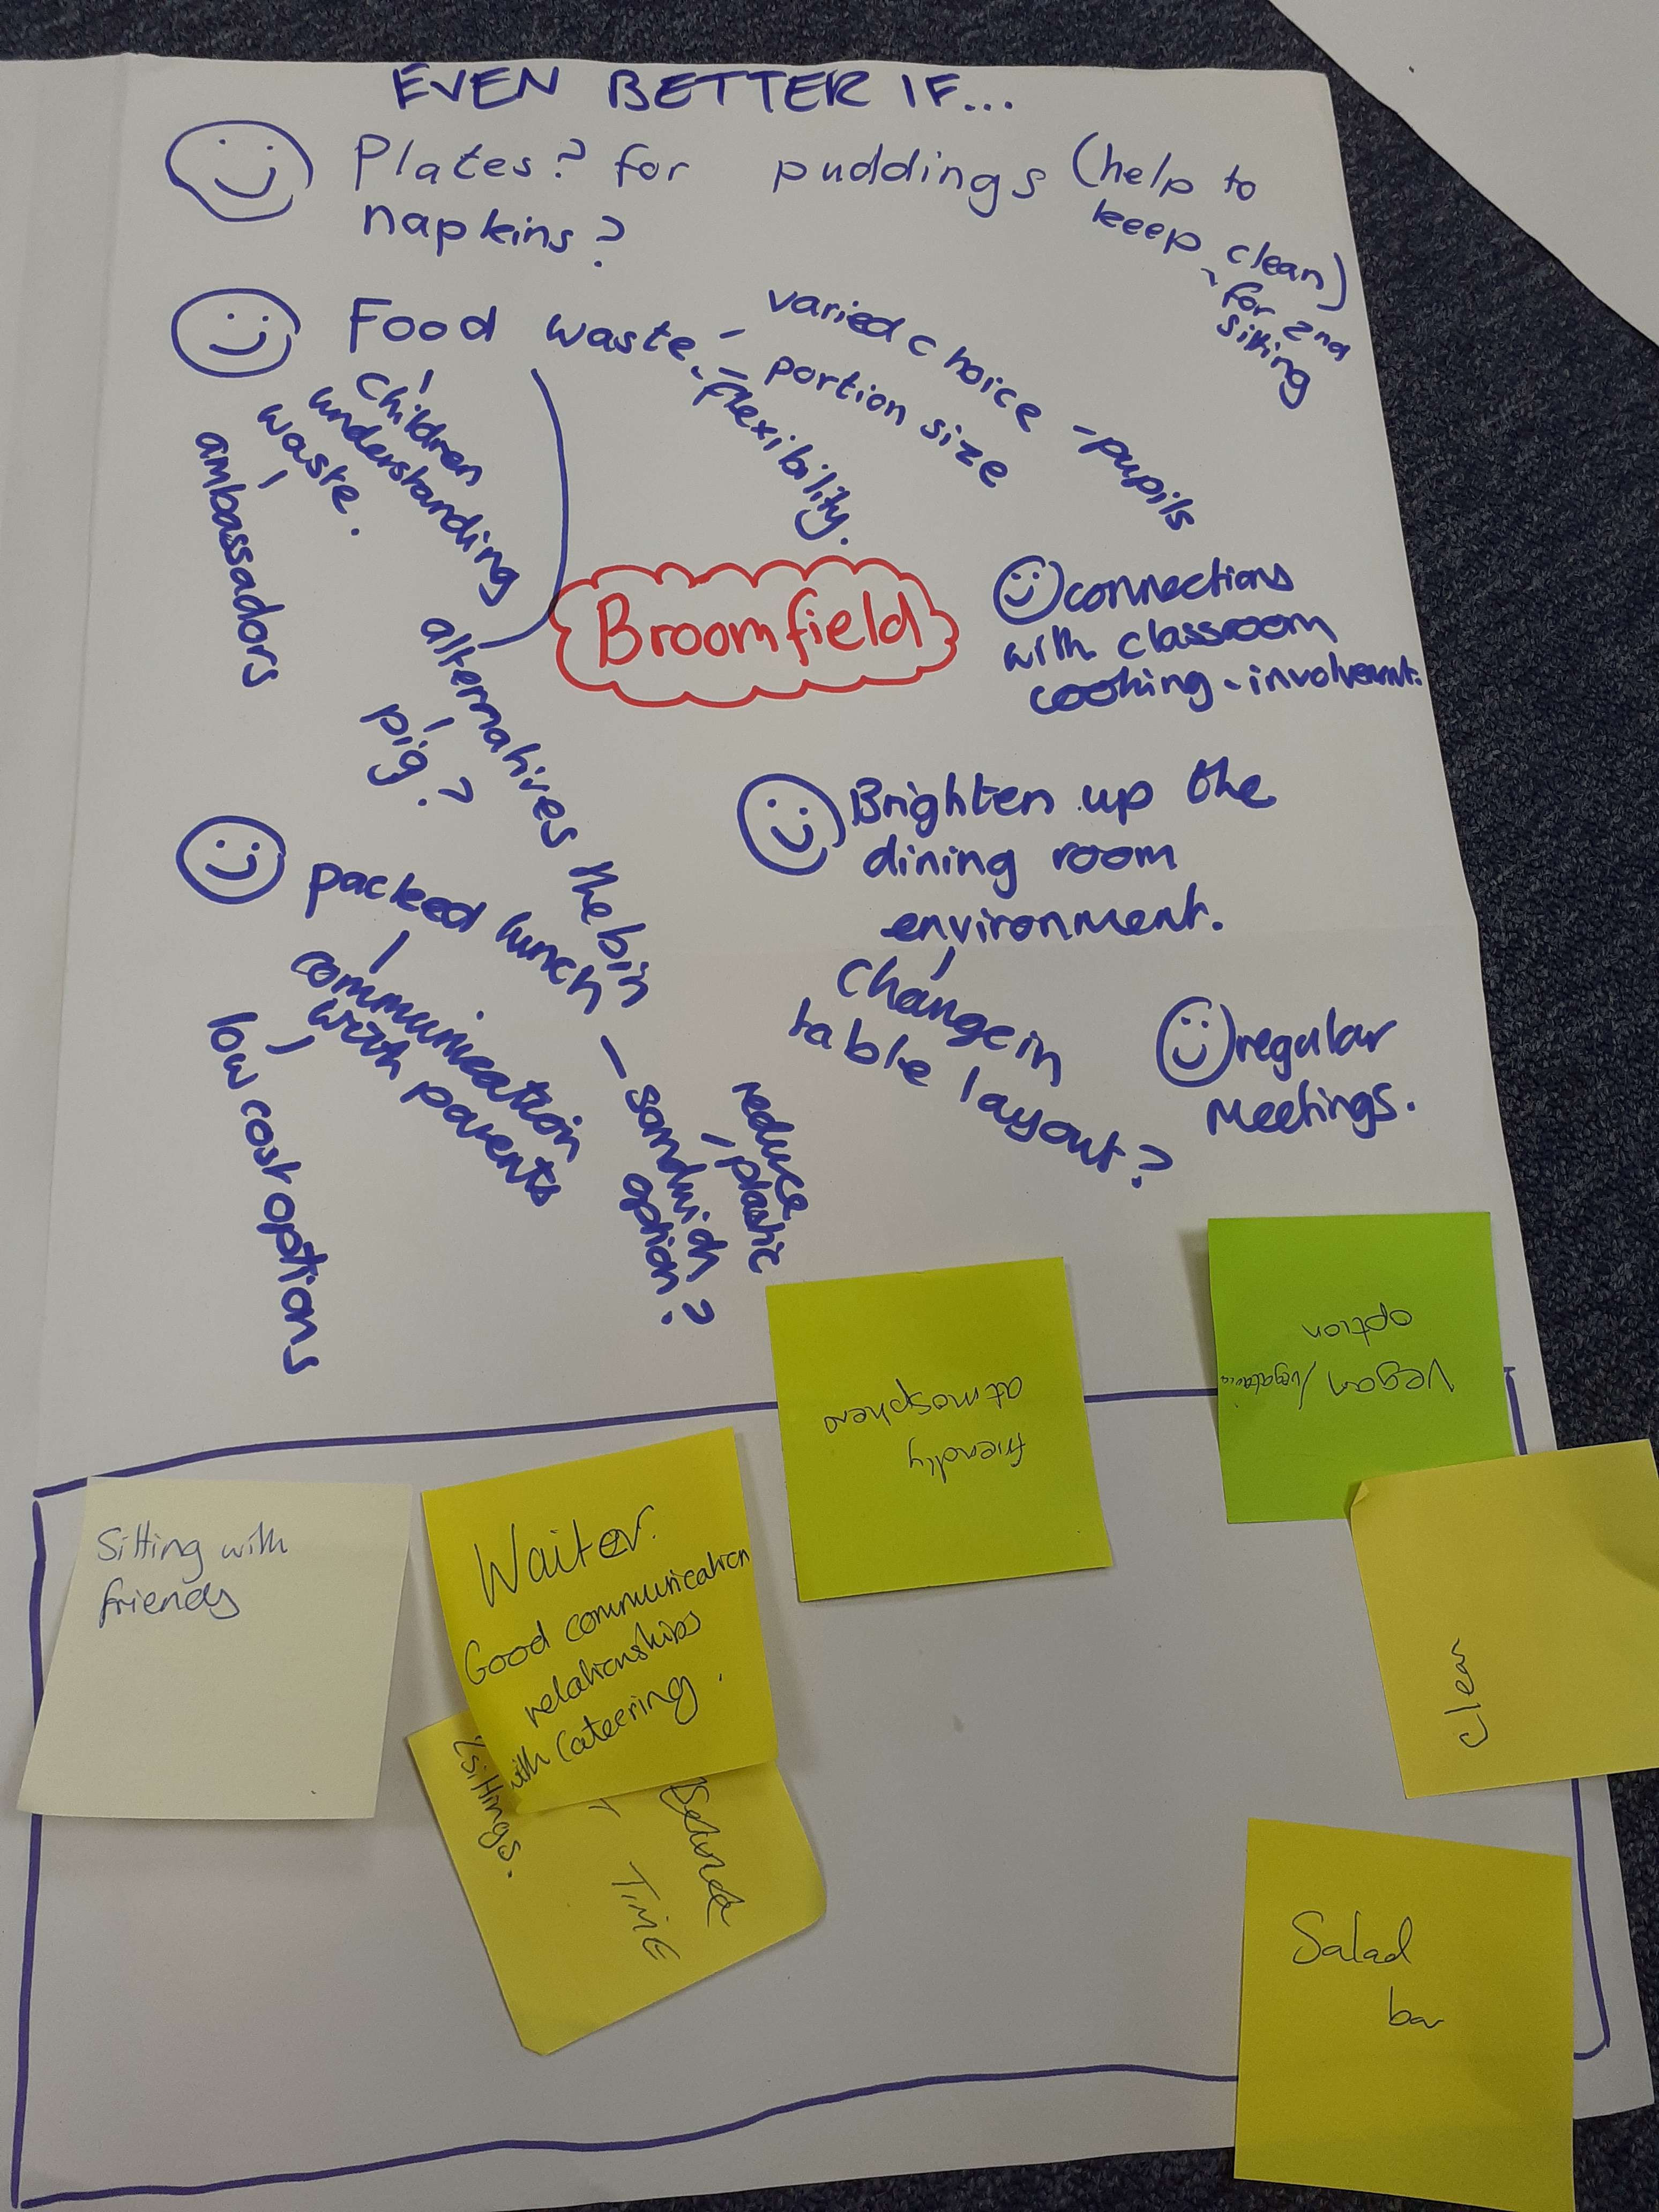 EVEN BETTER IF...
Plates? for puddings (help to
keep clean)
- for 2nd
sitting
napkins?
Food waste
- varied choice - pupils
- portion size
- flexibility.
children
understanding
waste.
ambassadors
alternatives the bin
pig?
Broomfield
connections
with classroom
cooking - involvement.
packed lunch - sandwich
option?
reduce
plastic
communication
with parents
low cost options
Brighten up the
dining room
environment.
Change in
table layout?
regular
meetings.
friendly
atmosphere
Vegan /
option
Sitting with
friends
Waiter.
Good communication
relationships
with Cateering.
sittings.
TIME
Salad
bar